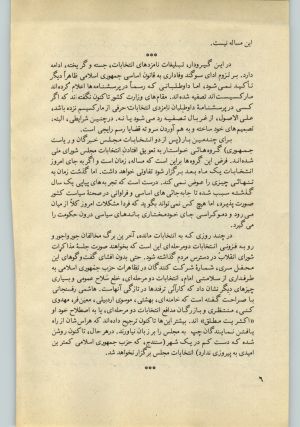 این مساله نیست.
***
در این گیرودار، تبلیغات نامزدهای انتخابات، جسته و گریخته، ادامه
دارد. بر لزوم ادای سوگند وفاداری به قانون اساسی جمهوری اسلامی ظاهراً دیگر
تأکید نمی‌شود، اما داوطلبانی که رسماً در پرسشنامه‌ها اعلام کرده‌اند
مارکسیست‌اند تصفیه شده‌اند. مقام‌های وزارت کشور تاکنون نگفته‌اند که اگر
کسی در پرسشنامهٔ داوطلبان نامزدی انتخابات حرفی از مارکسیسم نزده باشد،
علی‌الاصول، از غربال تصفیه رد می‌شود یا نه. درچنین شرایطی، البته،
تصمیم‌های خود ساخته و به هم آوردن سر و ته قضایا رسم رایجی است.
برای چندمین بار (پس از دو انتخابات مجلس خبرگان و ریاست
جمهوری) گروه‌هائی خواستار به تعویق افتادن انتخابات مجلس شورای ملی
شده‌اند. فرض این گروه‌ها براین است که مساله، زمان است و اگر به جای امروز
انتخابات یک ماه بعد برگزار شود تفاوتی خواهد داشت. اما گذشت زمان به
تنهائی چیزی را عوض نمی کند. درست است که تجربه‌های پیاپی یک سال
گذشته سبب شده تا جابه‌جائی های اساسی و فراوانی در صحنهٔ سیاست کشور
صورت پذیرد، اما هیچ کس نمی‌تواند بگوید که فردا مشکلات امروز کلاً از میان
می رود و دموکراسی جای خودمختاری باندهای سیاسی درون حکومت را
می گیرد.
در چند روزی که به انتخابات مانده، آخرین برگ مخالفان جورواجور و
رو به فزونی انتخابات دومرحله‌ای این است که بخواهند صورت جلسهٔ مذاکرات
شورای انقلاب در دسترس مردم گذاشته شود. حتی بدون افشای گفت‌وگوهای این
محفل سری، شمارهٔ شرکت کنندگان در تظاهرات حزب جمهوری اسلامی به
طرفداری از سلامتی امام، انتخابات دو مرحله‌ای، خلع سلاح عمومی و بسیاری
چیزهای دیگر نشان داد که کارآئی ترفندها در تازگی آنهاست. هاشمی رفسنجانی
با صراحت گفته است که خامنه‌ای، بهشتی، موسوی اردبیلی، معین‌فر، مهدوی
کنی، منتظری و بازرگان مدافع انتخابات دو مرحله‌ای، یا به اصطلاح خود او
«اکثریت مطلق» اند. بیشتر این‌ها تاکنون ترجیح داده‌اند که هراس‌شان از راه
یافتن نمایندگان چپ به مجلس را بر زبان نیاورند. درهرحال، تاکنون روشن
شده که دست کم در یک شهر (سنندج، که حزب جمهوری اسلامی کمترین
امیدی به پیروزی ندارد) انتخابات مجلس برگزار نخواهد شد.
***
۶